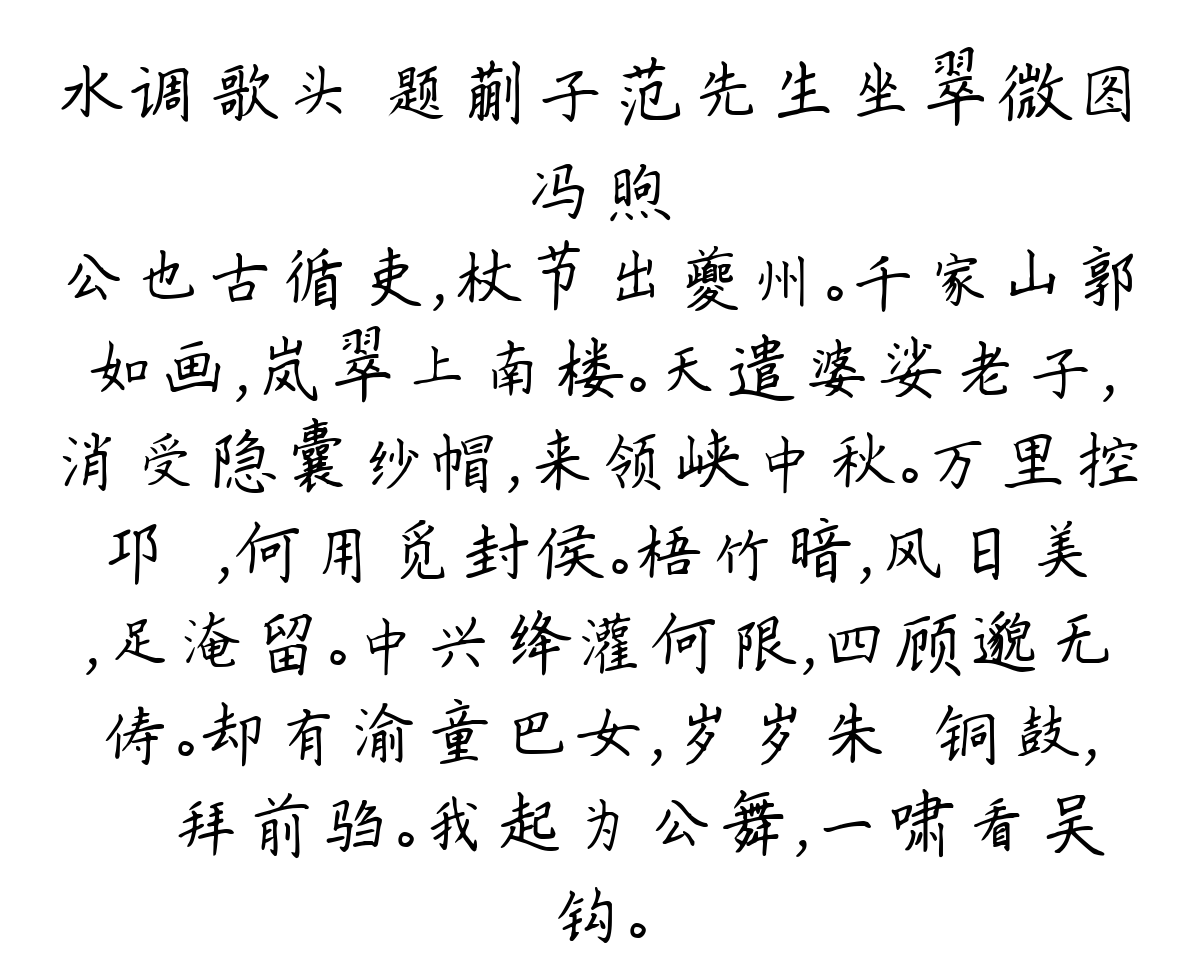 水调歌头 题蒯子范先生坐翠微图
冯煦
公也古循吏,杖节出夔州。千家山郭
如画,岚翠上南楼。天遣婆娑老子,
消受隐囊纱帽,来领峡中秋。万里控
邛 ,何用觅封侯。梧竹暗,风日美
,足淹留。中兴绛灌何限,四顾邈无
俦。却有渝童巴女,岁岁朱 铜鼓,
拜前驺。我起为公舞,一啸看吴
钩。